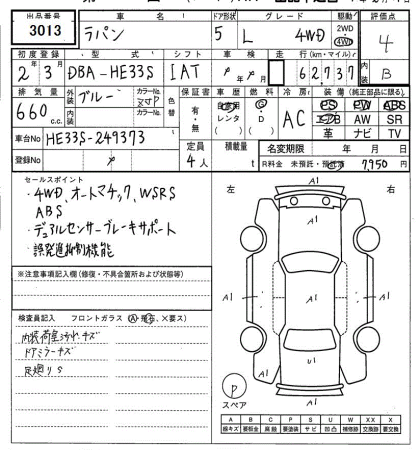 出品番号 車名 ドア形状 グレード 駆動 評価点
3013 ラパン 5 L 4WD 2WD 4WD 4
初度登録 型式 シフト 車検 走行(km・マイル) 内装
2年3月 DBA-HE33S IAT 年 月 62,737 B
排気量 外装 ブルー カラーNo. 色替 保証書 車歴 燃料 冷房 装備(純正部品に限る)
660 c.c. 内装 カラーNo. 有・無 自家用 レンタ G・D AC PS PW ABS
エアB AW SR
革 ナビ TV
車台No HE33S-249373
定員 積載量 名変期限 年 月 日
登録No
4人 t R料金 未預託・預託済 7,950円
セールスポイント
・4WD、オートマチック、WSRS
ABS
・デュアルセンサーブレーキサポート
・誤発進抑制機能
左 右
A1
A1
A1 A1 A1 A1
A1
U1
A1
※注意事項記入欄(修復・不具合箇所および状態等)
検査員記入 フロントガラス(A・飛石、×要ス)
内装荷室スカレ キズ
ドアミラーキズ
足廻りS
P
スペア
A B C P S U W X XX
線キズ 要板金 腐蝕 要塗装 サビ 凹凸 補修跡 要交換 交換跡